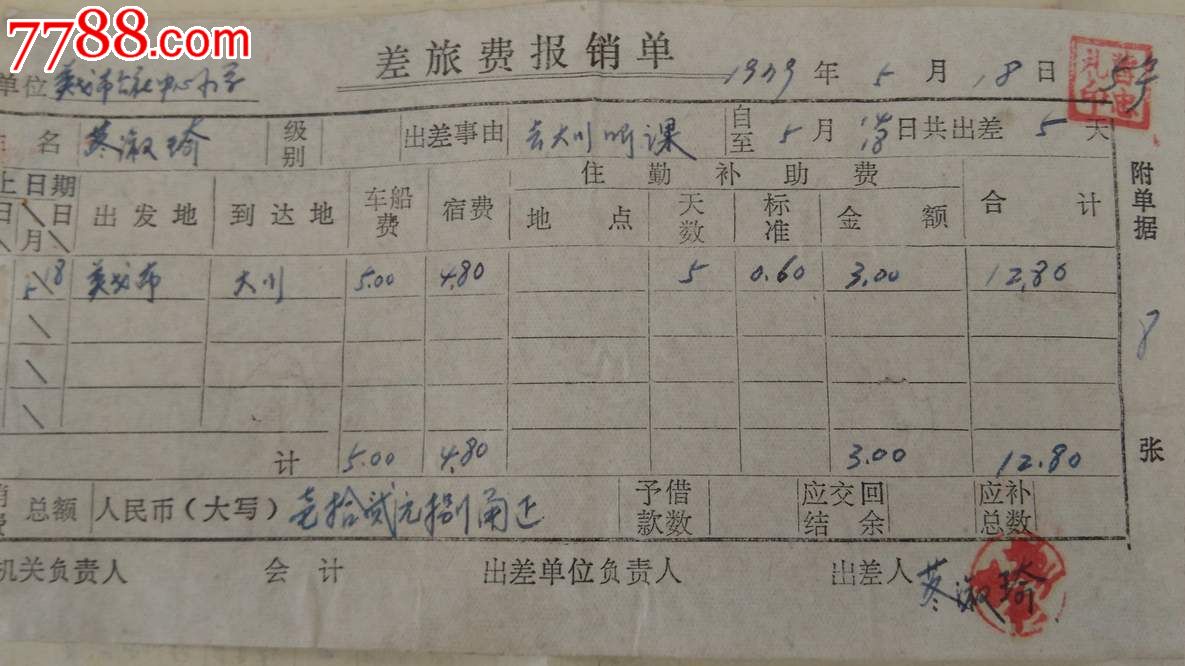 7788.com
差旅费报销单
单位 美戈布公社中心小学 1979年5月18日
名 蔡淑瑜 级别 出差事由 去大川听课 自至 5月18日共出差 5 天
上日期 出发地 到达地 车船费 宿费 住勤补助费 合计
日 日 月 地点 天数 标准 金额
5 18 美戈布 大川 5.00 4.80 5 0.60 3.00 12.80
计 5.00 4.80 3.00 12.80
附单据 8 张
总额 人民币（大写）壹拾贰元捌角正 予借款数 应交回结余 应补总数
机关负责人 会计 出差单位负责人 出差人 蔡淑瑜